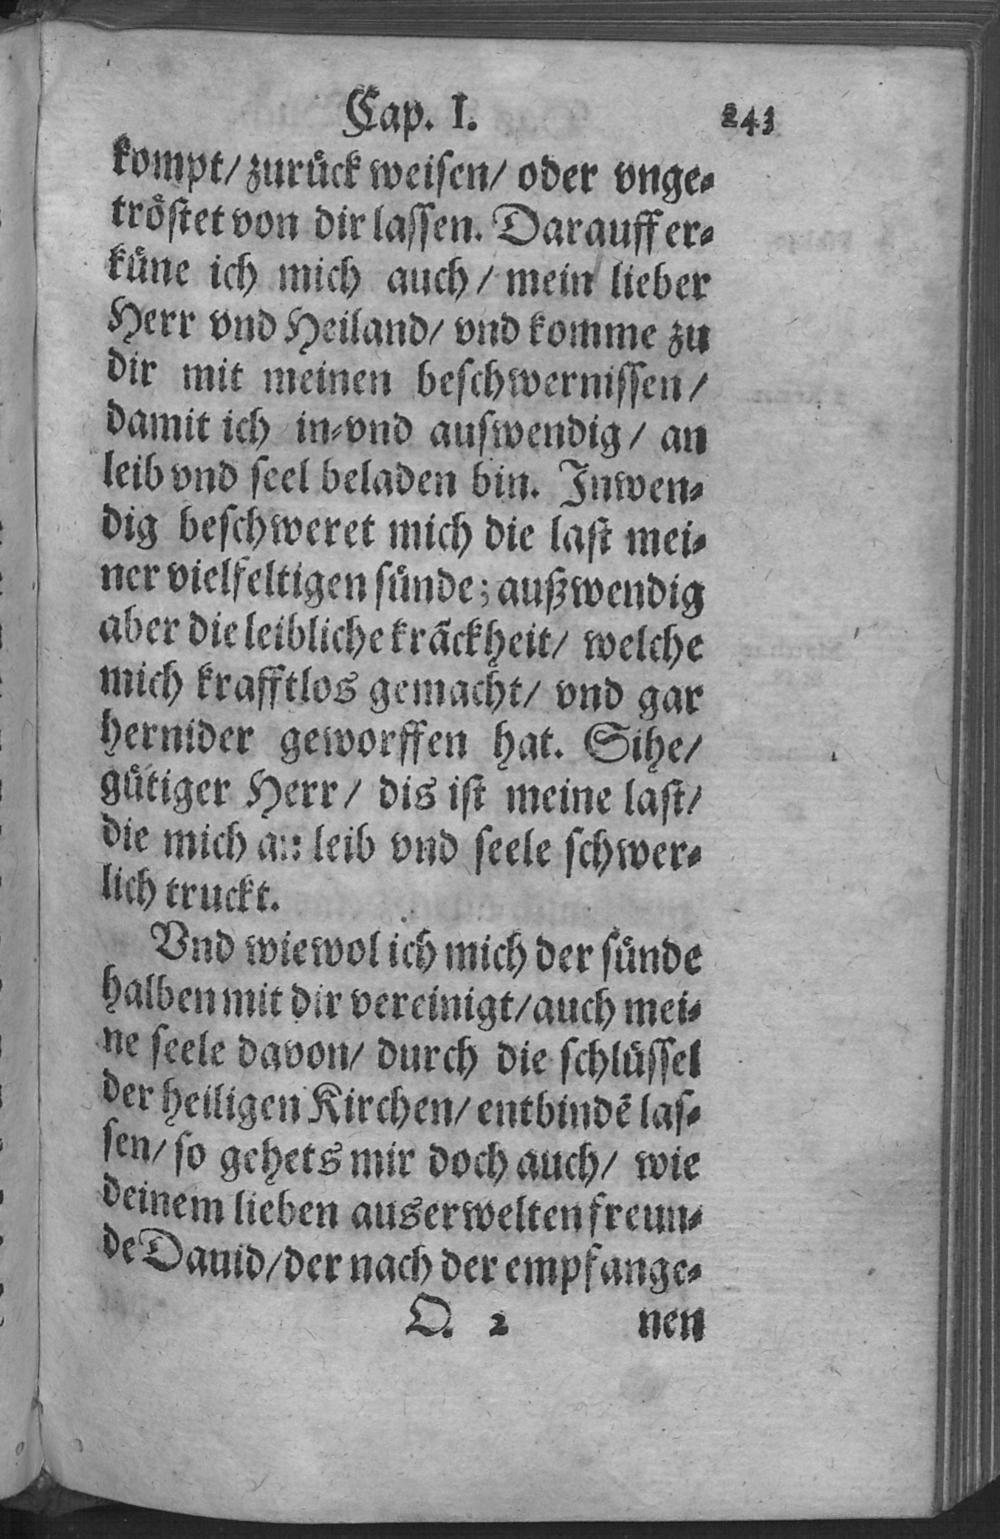 Cap. I. 243
kompt/ zurück weisen/ oder vnge-
tröstet von dir lassen. Darauff er-
küne ich mich auch / mein lieber
Herr vnd Heiland/ vnd komme zu
dir mit meinen beschwernissen/
damit ich in-vnd auswendig/ an
leib vnd seel beladen bin. Inwen-
dig beschweret mich die last mei-
ner vielfeltigen sünde; außwendig
aber die leibliche kräckheit/ welche
mich krafftlos gemacht/ vnd gar
hernider geworffen hat. Sihe/
gütiger Herr/ dis ist meine last/
die mich an leib vnd seele schwer-
lich truckt.
Vnd wiewol ich mich der sünde
halben mit dir vereinigt/ auch mei-
ne seele davon/ durch die schlüssel
der heiligen Kirchen/ entbindē las-
sen/ so gehets mir doch auch/ wie
deinem lieben auserwelten freun-
de Dauid/ der nach der empfange-
O. 2 nen